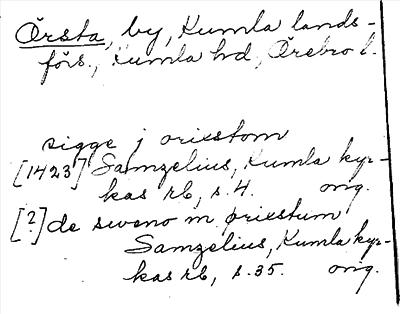 Örsta, by, Kumla lands-
förs., Kumla hd, Örebro l.
sigge j orisstom
[1423] Samzelius, Kumla kyr-
kas rb, s. 4. orig.
[?] de sweno m ørisstum
Samzelius, Kumla kyr-
kas rb, s. 35. orig.